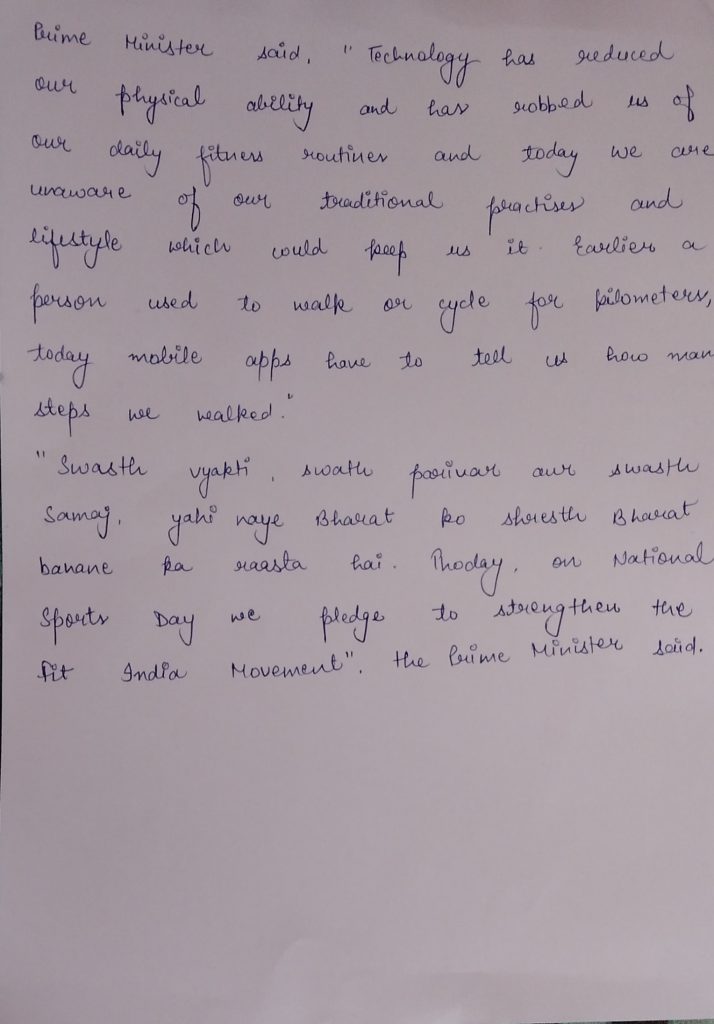 Prime Minister said, "Technology has reduced
our physical ability and has robbed us of
our daily fitness routines and today we are
unaware of our traditional practises and
lifestyle which could keep us it. Earlier a
person used to walk or cycle for kilometers,
today mobile apps have to tell us how man
steps we walked."
"Swasth vyakti, swath pariivar aur swasth
Samaj, yahi naye Bharat ko shresth Bharat
banane ka raasta hai. Thoday, on National
Sports Day we pledge to strengthen the
Fit India Movement". the Prime Minister said.